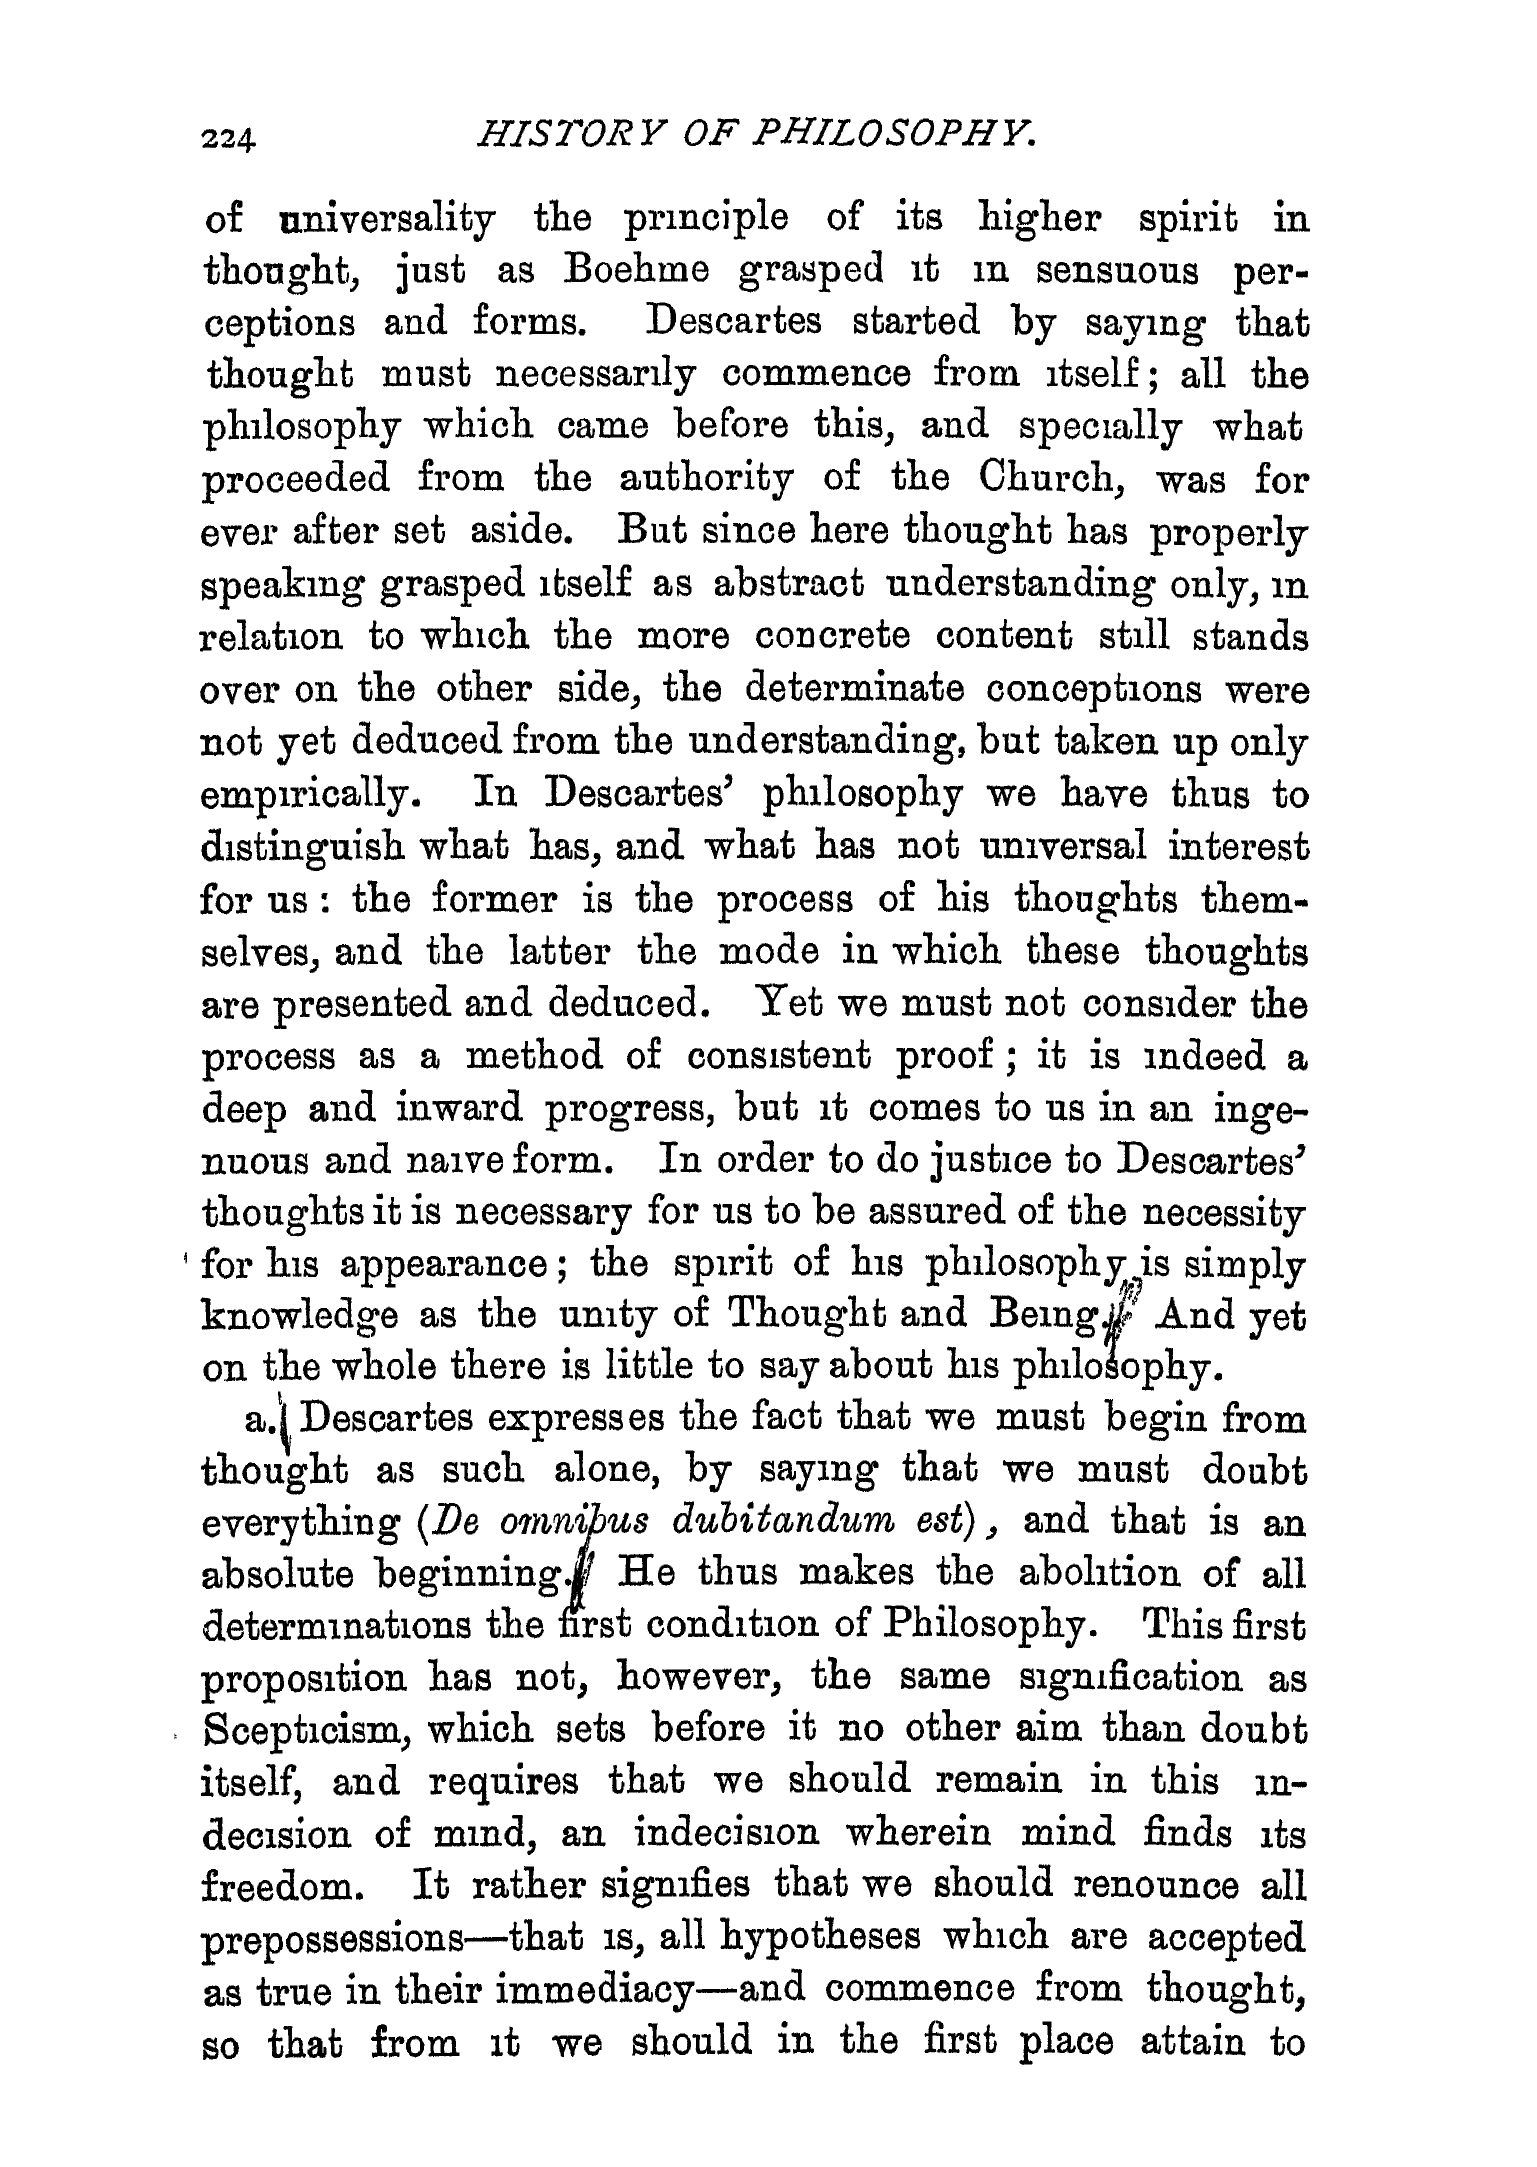 224 HISTORY OF PHILOSOPHY.
of universality the principle of its higher spirit in
thought, just as Boehme grasped it in sensuous per-
ceptions and forms. Descartes started by saying that
thought must necessarily commence from itself; all the
philosophy which came before this, and specially what
proceeded from the authority of the Church, was for
ever after set aside. But since here thought has properly
speaking grasped itself as abstract understanding only, in
relation to which the more concrete content still stands
over on the other side, the determinate conceptions were
not yet deduced from the understanding, but taken up only
empirically. In Descartes’ philosophy we have thus to
distinguish what has, and what has not universal interest
for us: the former is the process of his thoughts them-
selves, and the latter the mode in which these thoughts
are presented and deduced. Yet we must not consider the
process as a method of consistent proof; it is indeed a
deep and inward progress, but it comes to us in an inge-
nuous and naive form. In order to do justice to Descartes’
thoughts it is necessary for us to be assured of the necessity
for his appearance; the spirit of his philosophy is simply
knowledge as the unity of Thought and Being. And yet
on the whole there is little to say about his philosophy.
a. Descartes expresses the fact that we must begin from
thought as such alone, by saying that we must doubt
everything (De omnibus dubitandum est), and that is an
absolute beginning. He thus makes the abolition of all
determinations the first condition of Philosophy. This first
proposition has not, however, the same signification as
Scepticism, which sets before it no other aim than doubt
itself, and requires that we should remain in this in-
decision of mind, an indecision wherein mind finds its
freedom. It rather signifies that we should renounce all
prepossessions—that is, all hypotheses which are accepted
as true in their immediacy—and commence from thought,
so that from it we should in the first place attain to